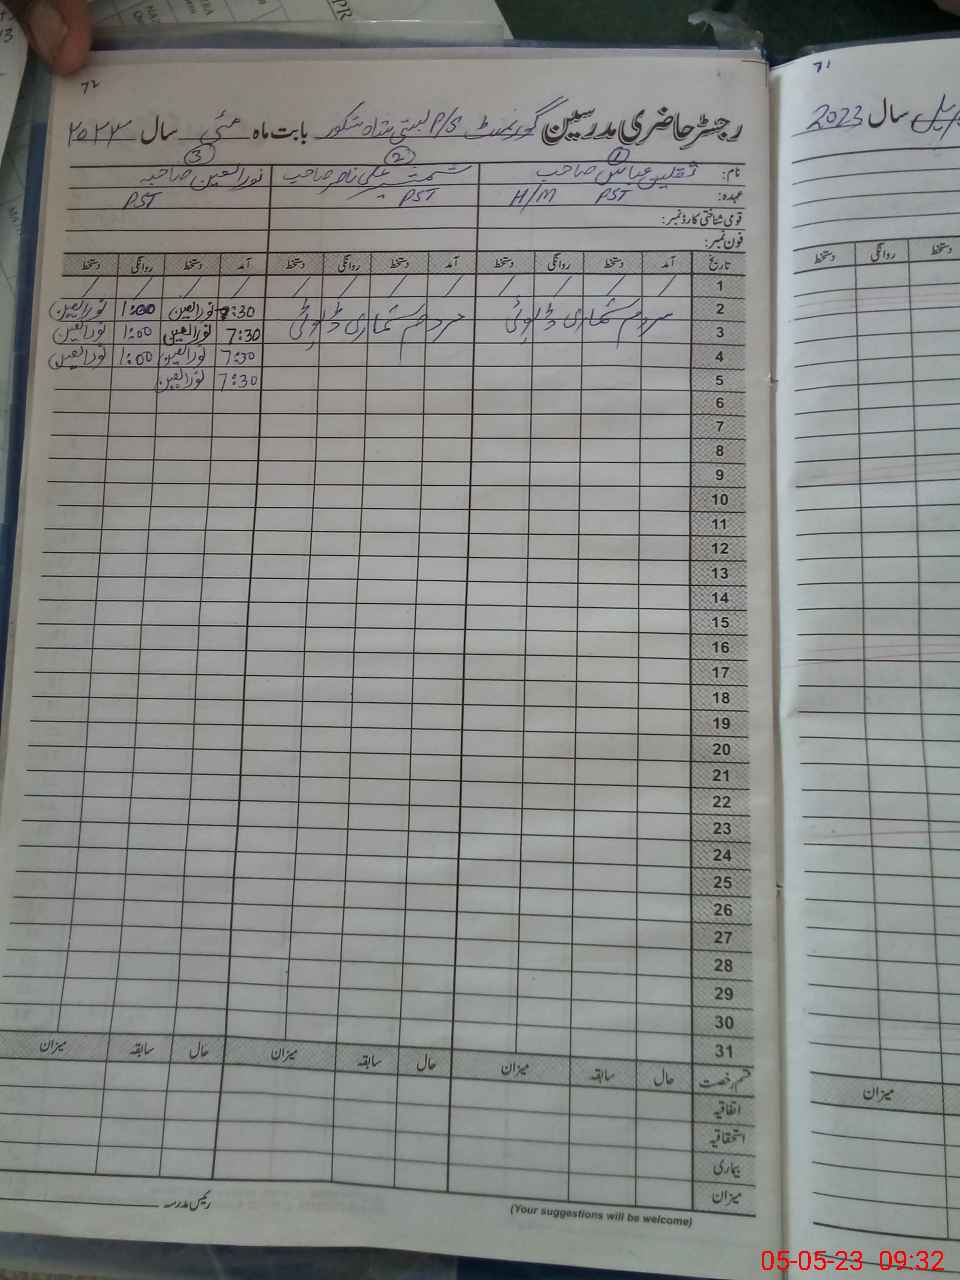 ۷۲
رجسٹر حاضری مدرسین گورنمنٹ P/S بستی بابت ماہ مئی سال ۲۰۲۳
① ② ③
نام: ثقلین عباس صاحب شمشیر علی ناصر صاحب نورالعین صاحبہ
عہدہ: PST H/M PST PST
قومی شناختی کارڈ نمبر:
فون نمبر:
تاریخ آمد دستخط روانگی دستخط آمد دستخط روانگی دستخط آمد دستخط روانگی دستخط
1
2 مردم شماری ڈیوٹی مردم شماری ڈیوٹی 7:30 نورالعین 1:00 نورالعین
3 7:30 نورالعین 1:00 نورالعین
4 7:30 نورالعین 1:00 نورالعین
5 7:30 نورالعین
6
7
8
9
10
11
12
13
14
15
16
17
18
19
20
21
22
23
24
25
26
27
28
29
30
31
قسم رخصت حال سابقہ میزان حال سابقہ میزان حال سابقہ میزان
اتفاقیہ
استحقاقیہ
بیماری
میزان
(Your suggestions will be welcome)
رئیس مدرسہ
۷۱
سال 2023
دستخط روانگی دستخط
میزان
05-05-23 09:32